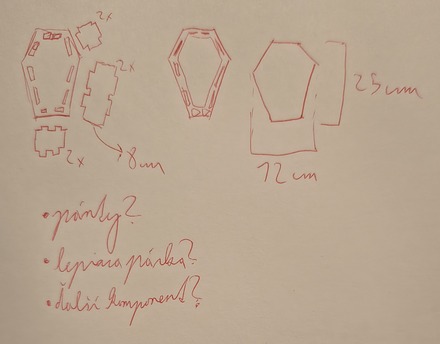 2x
2x
2x
8cm
25cm
12cm
• pánty?
• lepiaca páska?
• Ďalší komponent?